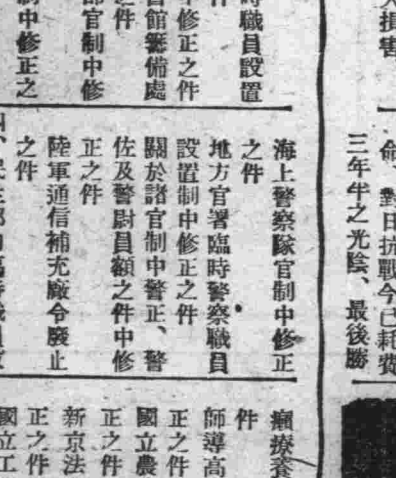 命、對日抗戰今已耗費
三年半之光陰、最後勝
時職員設置
修正之件
官制中修
制中修正之
海上警察隊官制中修正
之件
地方官署臨時警察職員
設置制中修正之件
關於諸官制中警正、警
佐及警尉員額之件中修
正之件
陸軍通信補充廠令廢止
之件
癩療養
件
師導高
正之件
國立農
正之件
新京法
正之件
國立工